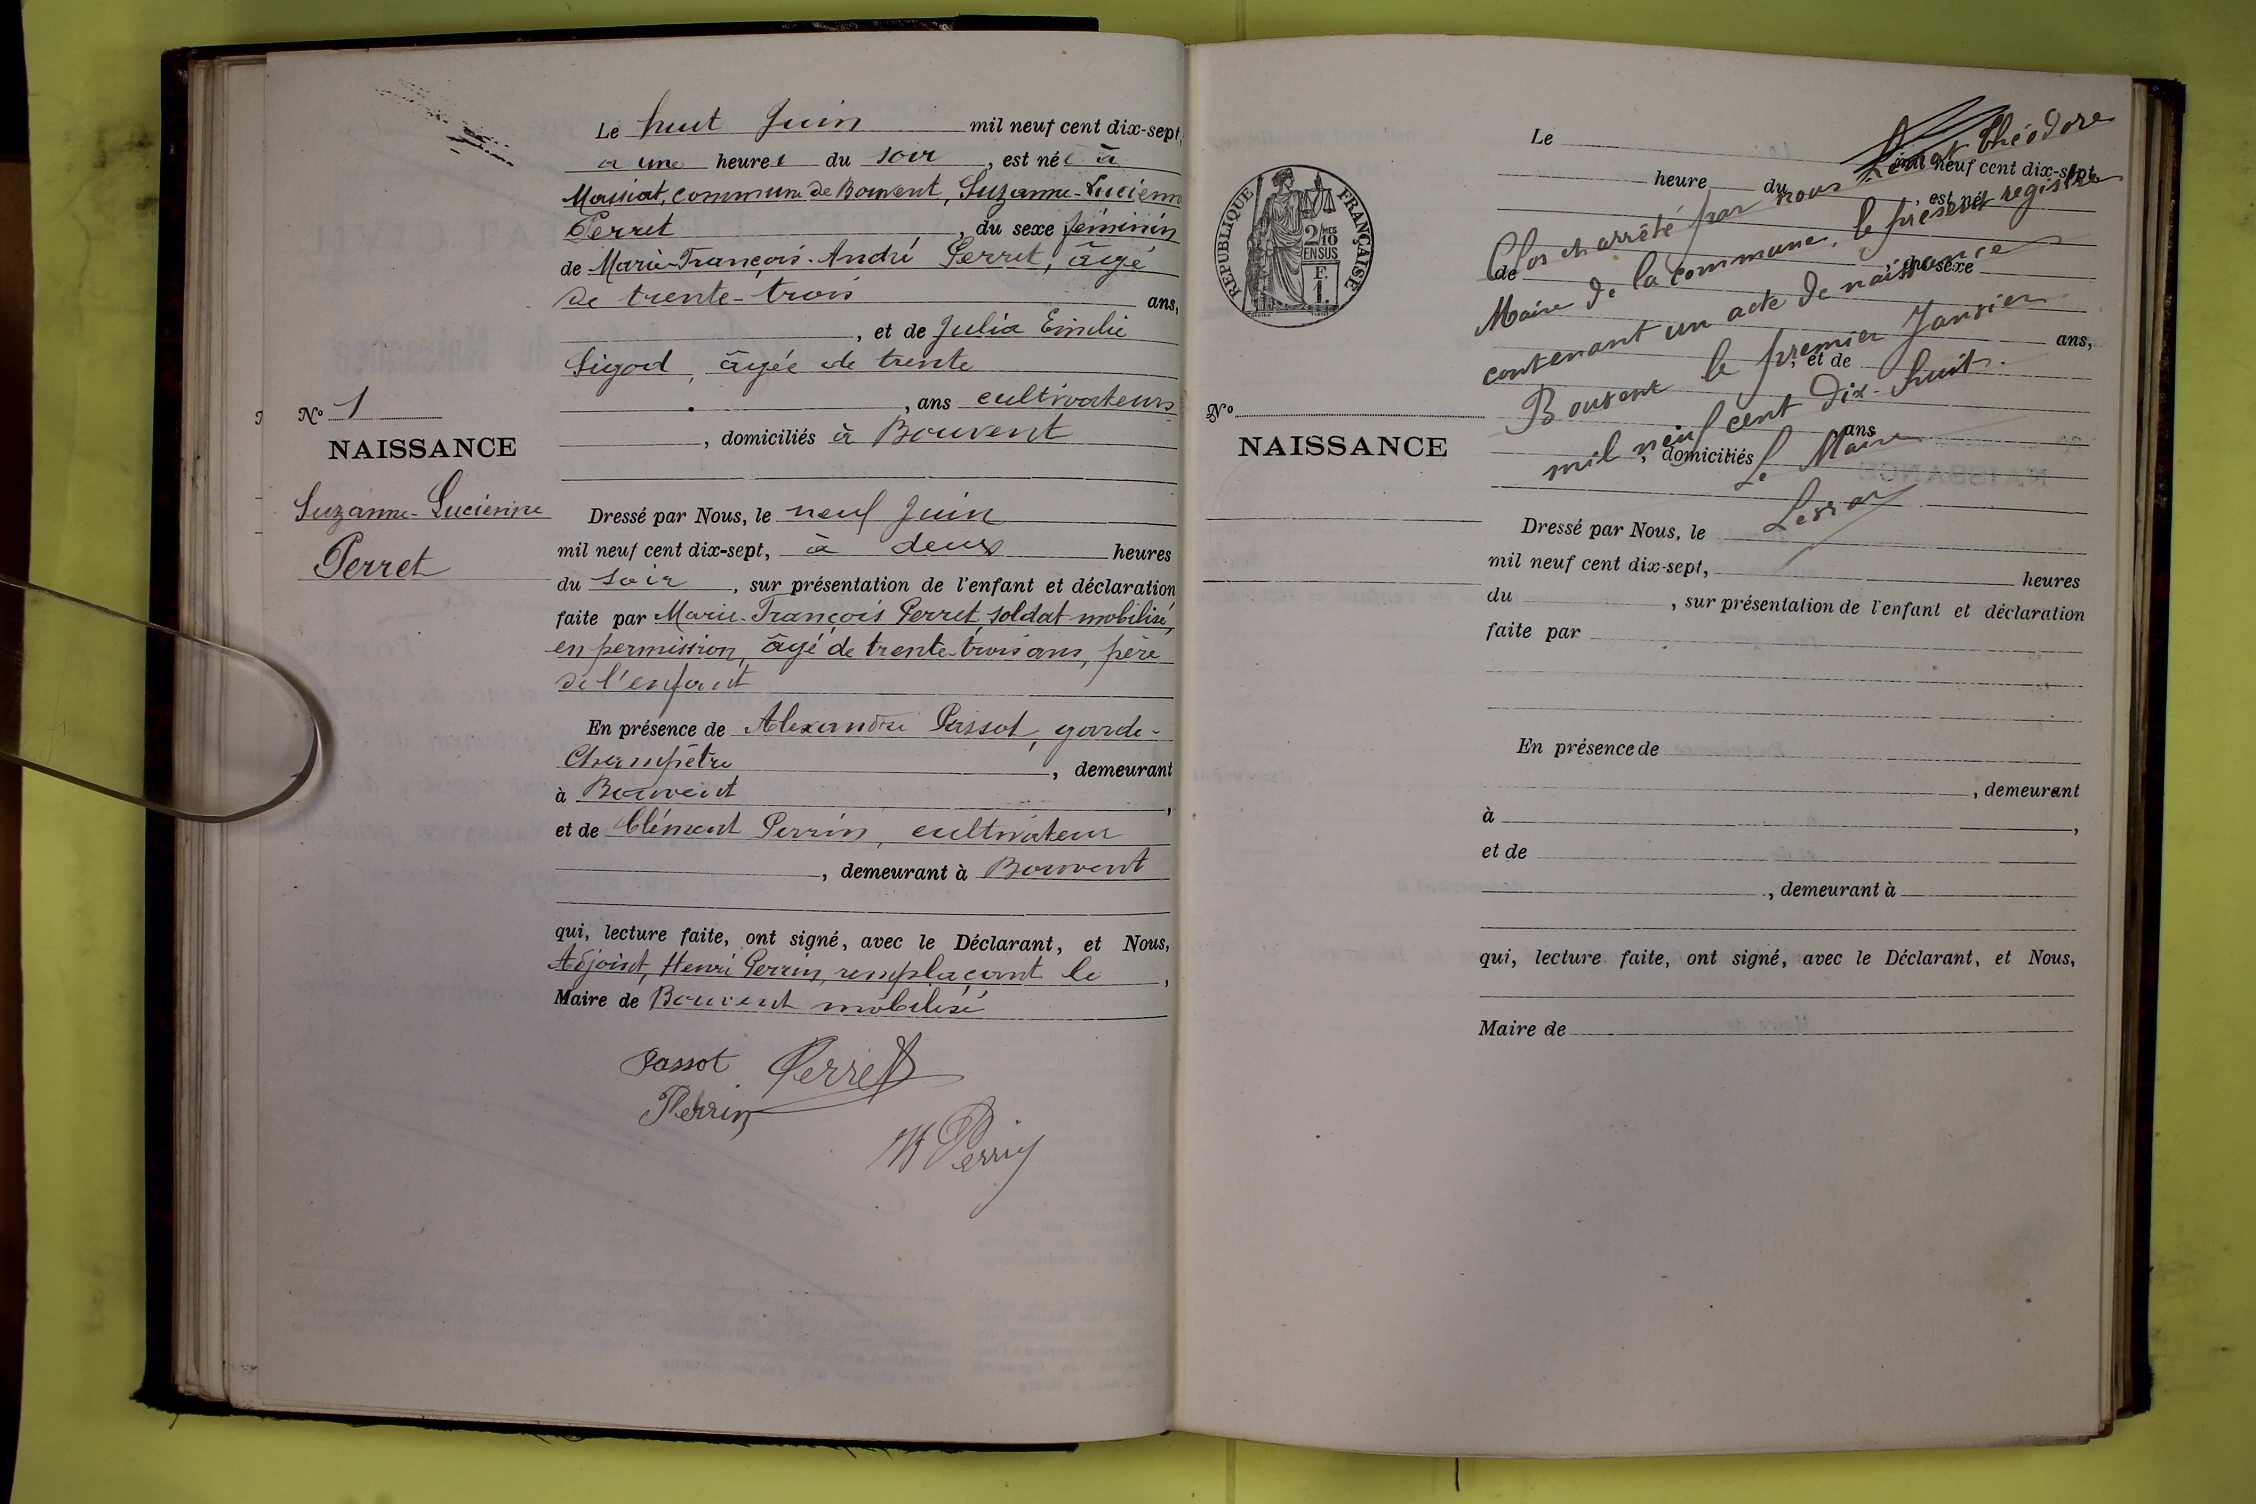 Le huit Juin mil neuf cent dix-sept,
à une heure du soir, est née à
Massiat, commune de Bouvent, Suzanne-Lucienne
Perret, du sexe féminin
de Marie-François-André Perret, âgé
de trente-trois ans,
, et de Julia Emilie
Sigod, âgée de trente
, ans cultivateurs
, domiciliés à Bouvent
N° 1
NAISSANCE
Suzanne-Lucienne
Perret
Dressé par Nous, le neuf Juin
mil neuf cent dix-sept, à deux heures
du soir, sur présentation de l'enfant et déclaration
faite par Marie-François Perret, soldat mobilisé,
en permission, âgé de trente-trois ans, père
de l'enfant
En présence de Alexandre Passot, garde-
Champêtre, demeurant
à Bouvent,
et de Clément Perrin, cultivateur
, demeurant à Bouvent
qui, lecture faite, ont signé, avec le Déclarant, et Nous,
Adjoint, Henri Perrin, remplaçant le,
Maire de Bouvent mobilisé
Passot Perret
Perrin
H Perrin
RÉPUBLIQUE FRANÇAISE
2/10 MES
EN SUS
F.
1.
N°
NAISSANCE
Le mil neuf cent dix-sept,
heure du , est né
de , du sexe
ans,
, et de
ans
, domiciliés
Clos et arrêté par nous Théodore
Maire de la commune, le présent registre
contenant un acte de naissance
Bouvent le premier Janvier
mil neuf cent dix-huit.
Le Maire
Dressé par Nous, le
mil neuf cent dix-sept, heures
du , sur présentation de l'enfant et déclaration
faite par
En présence de
, demeurant
à ,
et de
, demeurant à
qui, lecture faite, ont signé, avec le Déclarant, et Nous,
Maire de